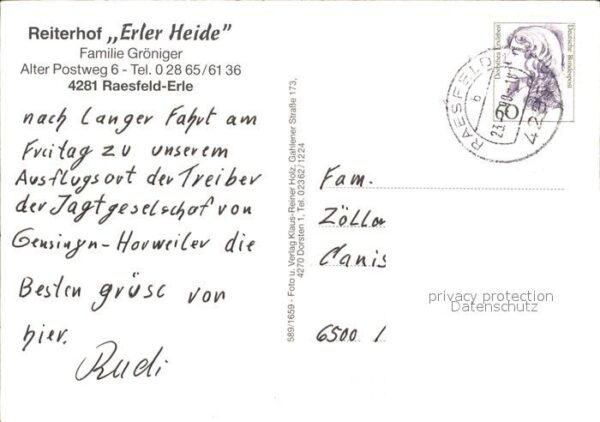 Reiterhof „Erler Heide”
Familie Gröniger
Alter Postweg 6 - Tel. 0 28 65/61 36
4281 Raesfeld-Erle
nach langer Fahrt am
Freitag zu unserem
Ausflugsort der Treiber
der Jagtgeselschaf von
Gensingn-Horweiler die
Besten grüse von
hier.
Rudi
589/1659 - Foto u. Verlag Klaus-Reiner Holz, Gahlener Straße 173,
4270 Dorsten 1, Tel. 02362/1224
Fam.
Zöller
Canis
6500 1
privacy protection
Datenschutz
Dorothea Erxleben
Deutsche Bundespost
60
RAESFELD